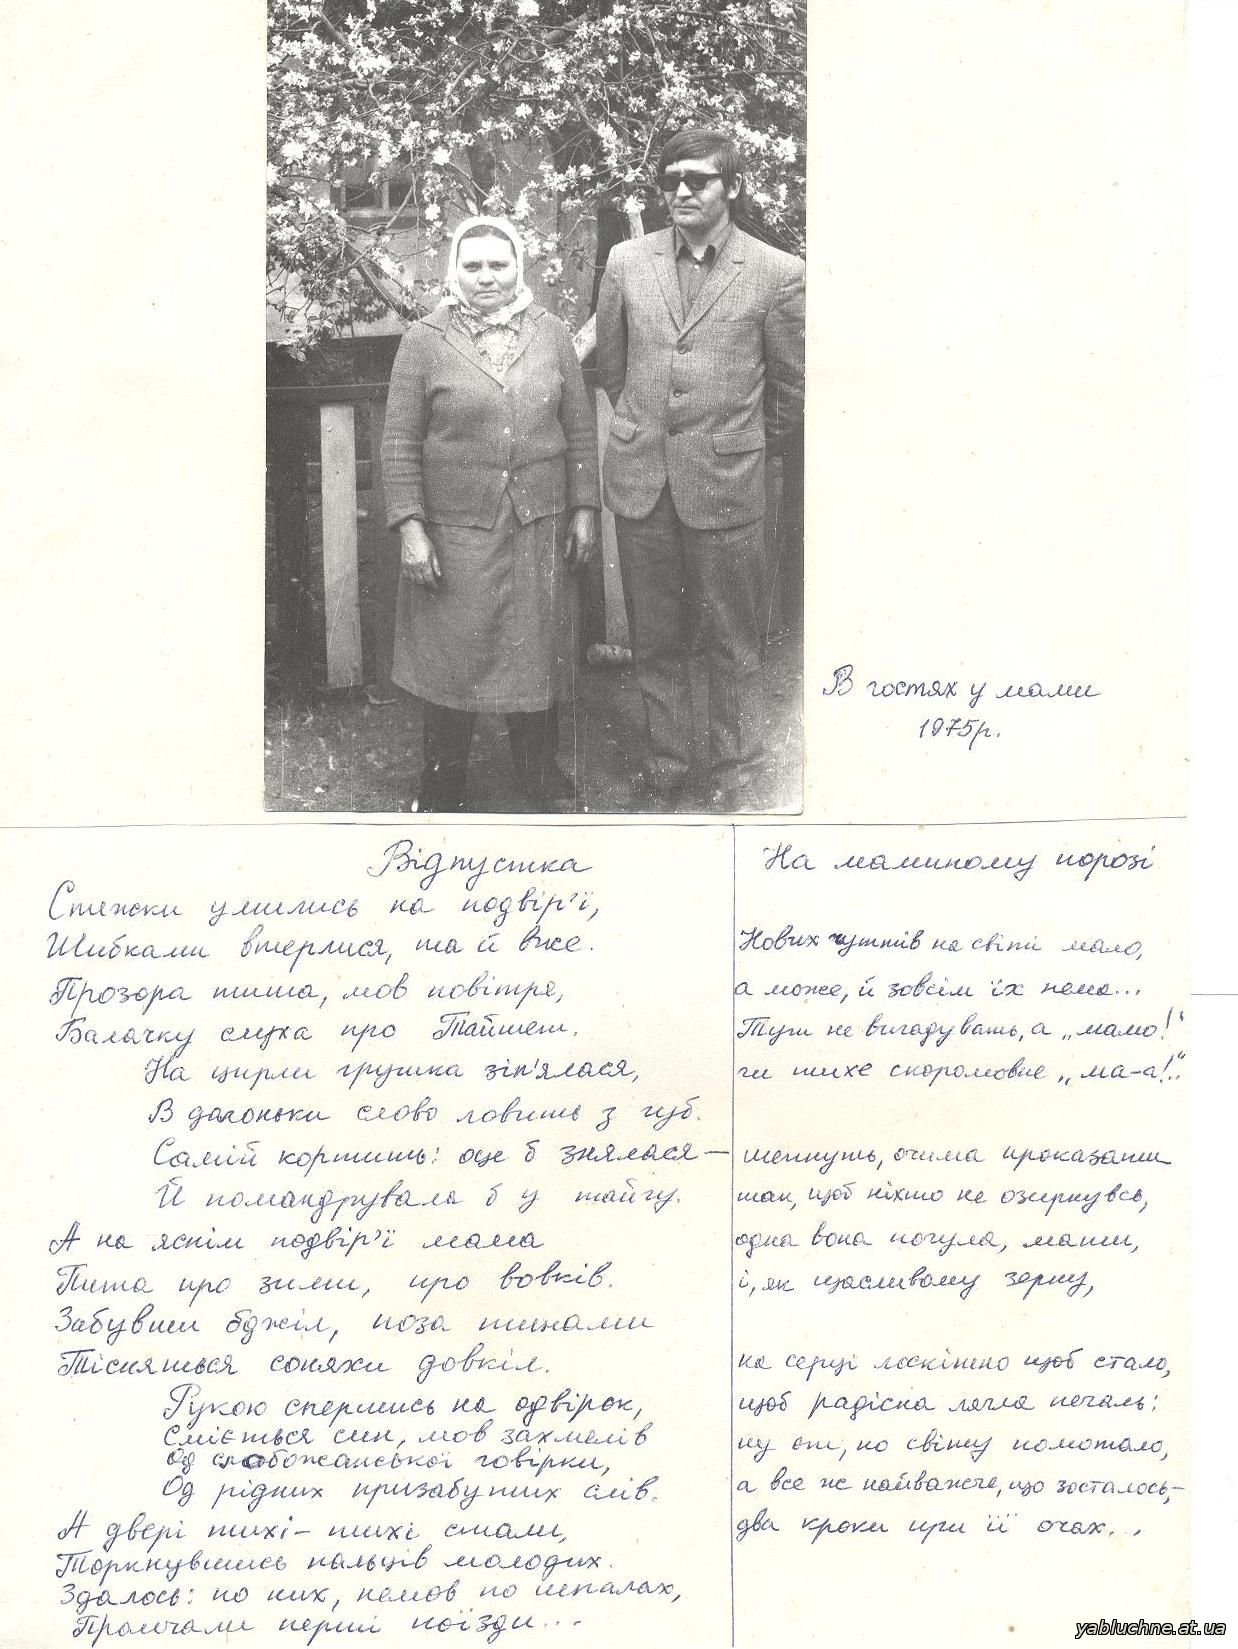 В гостях у мами
1975р.
Відпустка
Стежки умились на подвір'ї,
Шибками втерлися, та й вже.
Прозора тиша, мов повітря,
Балачку слуха про Тайшет.
На цирли грушка зіп'ялася,
В долоньки слово ловить з губ.
Самій кортить: оце б знялася —
Й помандрувала б у тайгу.
А на яснім подвір'ї мама
Пита про зими, про вовків.
Забувши бджіл, поза тинами
Тісняться соняхи довкіл.
Рукою спершись на одвірок,
Сміється син, мов захмелів
Од слобожанської говірки,
Од рідних призабутих слів.
А двері тихі-тихі стали,
Торкнувшись пальців молодих.
Здалось: по них, немов по шпалах,
Промчали перші поїзди...
На маминому порозі
Нових чуттів на світі мало,
а може, й зовсім їх нема...
Тут не вигадувать, а „мамо!“
чи тихе скоромовне „ма-а!..“
шепнуть, очима проказати
так, щоб ніхто не озирнувсь,
одна вона почула, мати,
і, як щасливому зерну,
на серці лоскітно щоб стало,
щоб радісна лягла печаль:
ну от, по світу помотало,
а все ж найважче, що зосталось,—
два кроки при її очах...
yabluchne.at.ua